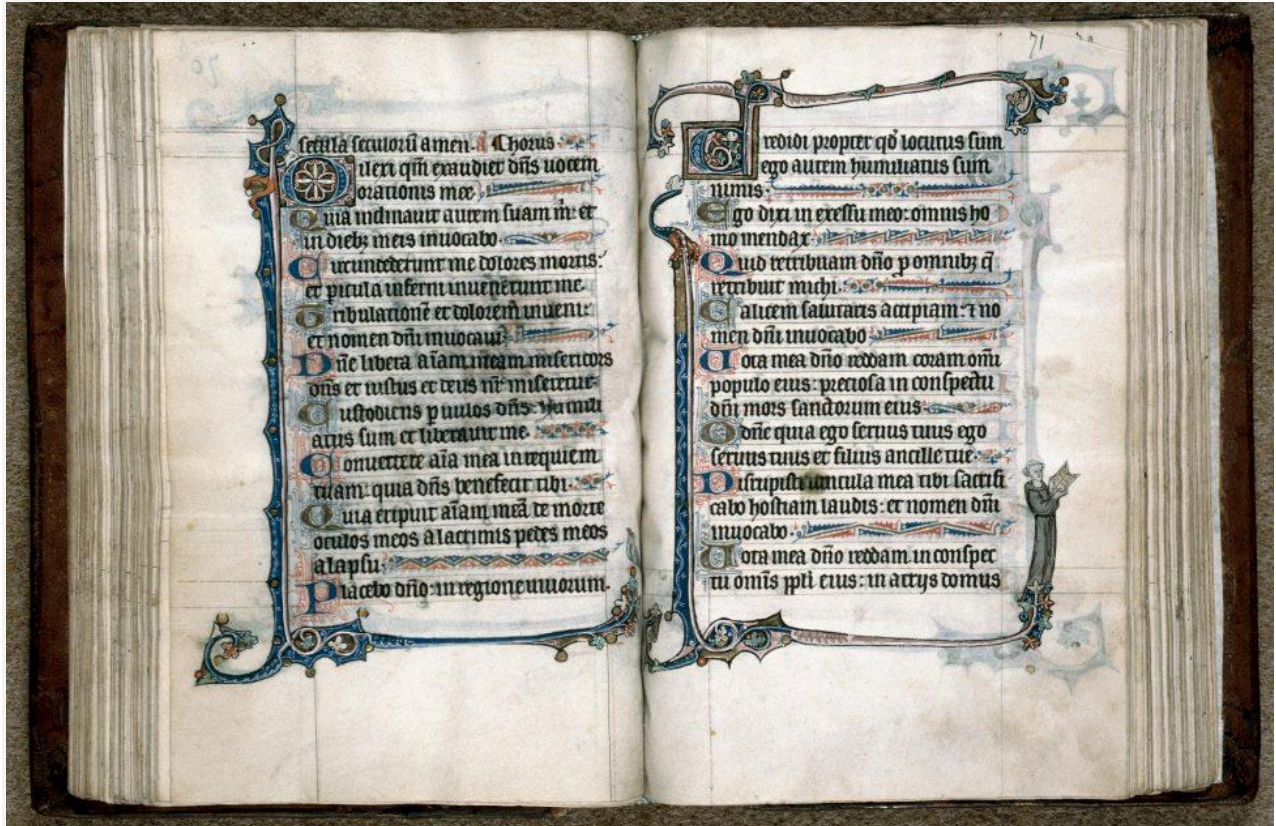 71
secula seculorū amen. a Chorus
Dilexi qm̄ exaudiet dn̄s uocem
orationis mee
Quia inclinauit aurem suam m̄: et
in diebꝫ meis inuocabo.
Circundederunt me dolores mortis:
et picula inferni inuenerunt me.
Tribulationē et dolorem inueni:
et nomen dn̄i inuocaui.
Dn̄e libera aīam meam misericors
dn̄s et iustus et deus nr̄ miseretur.
Custodiens p uulos dn̄s: humili
atus sum et liberauit me.
Conuertere aīa mea in requiem
tuam: quia dn̄s benefecit tibi.
Quia eripuit aīam meā de morte
oculos meos a lacrimis pedes meos
a lapsu.
Placebo dn̄o: in regione uiuorum.
Credidi propter qd̄ locutus sum
ego autem humiliatus sum
nimis.
Ego dixi in exessu meo: omnis ho
mo mendax.
Quid retribuam dn̄o p omnibꝫ q̄
retribuit michi.
Calicem salutaris accipiam: ⁊ no
men dn̄i inuocabo
Uota mea dn̄o reddam coram omī
populo eius: preciosa in conspectu
dn̄i mors sanctorum eius.
O dn̄e quia ego seruus tuus ego
seruus tuus et filius ancille tue.
Disrupisti uincula mea tibi sacrifi
cabo hostiam laudis: et nomen dn̄i
inuocabo.
Uota mea dn̄o reddam in conspec
tu omīs ppli eius: in atrys domus